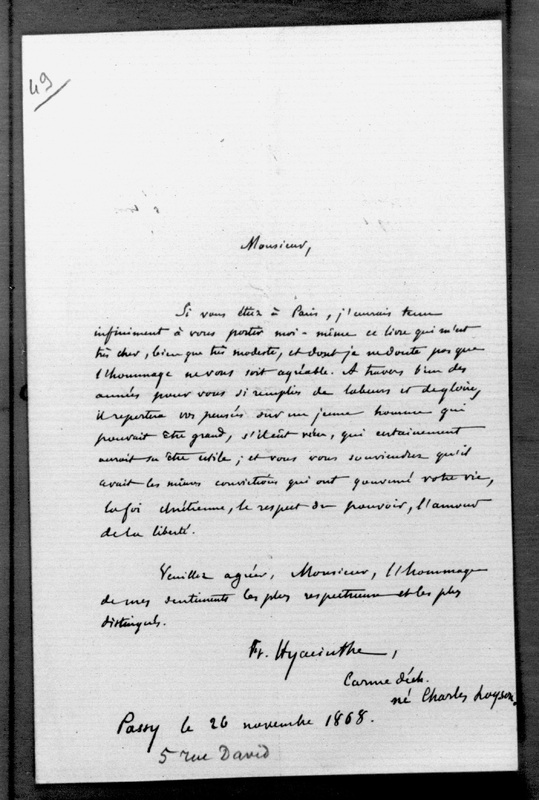 49
Monsieur,
Si vous étiez à Paris, j'aurais tenu
infiniment à vous porter moi-même ce livre qui m'est
très cher, bien que très modeste, et dont je ne doute pas que
l'hommage ne vous soit agréable. A travers bien des
années pour vous si remplies de labeurs et de gloire,
il reportera vos pensées sur un jeune homme qui
pouvait être grand, s'il eût vécu, qui certainement
aurait su être utile ; et vous vous souviendrez qu'il
avait les mêmes convictions qui ont gouverné votre vie,
la foi chrétienne, le respect du pouvoir, l'amour
de la liberté.
Veuillez agréer, Monsieur, l'hommage
de mes sentiments les plus respectueux et les plus
distingués.
Fr. Hyacinthe,
Carme déch.
né Charles Loyson.
Passy le 26 novembre 1868.
5 rue David